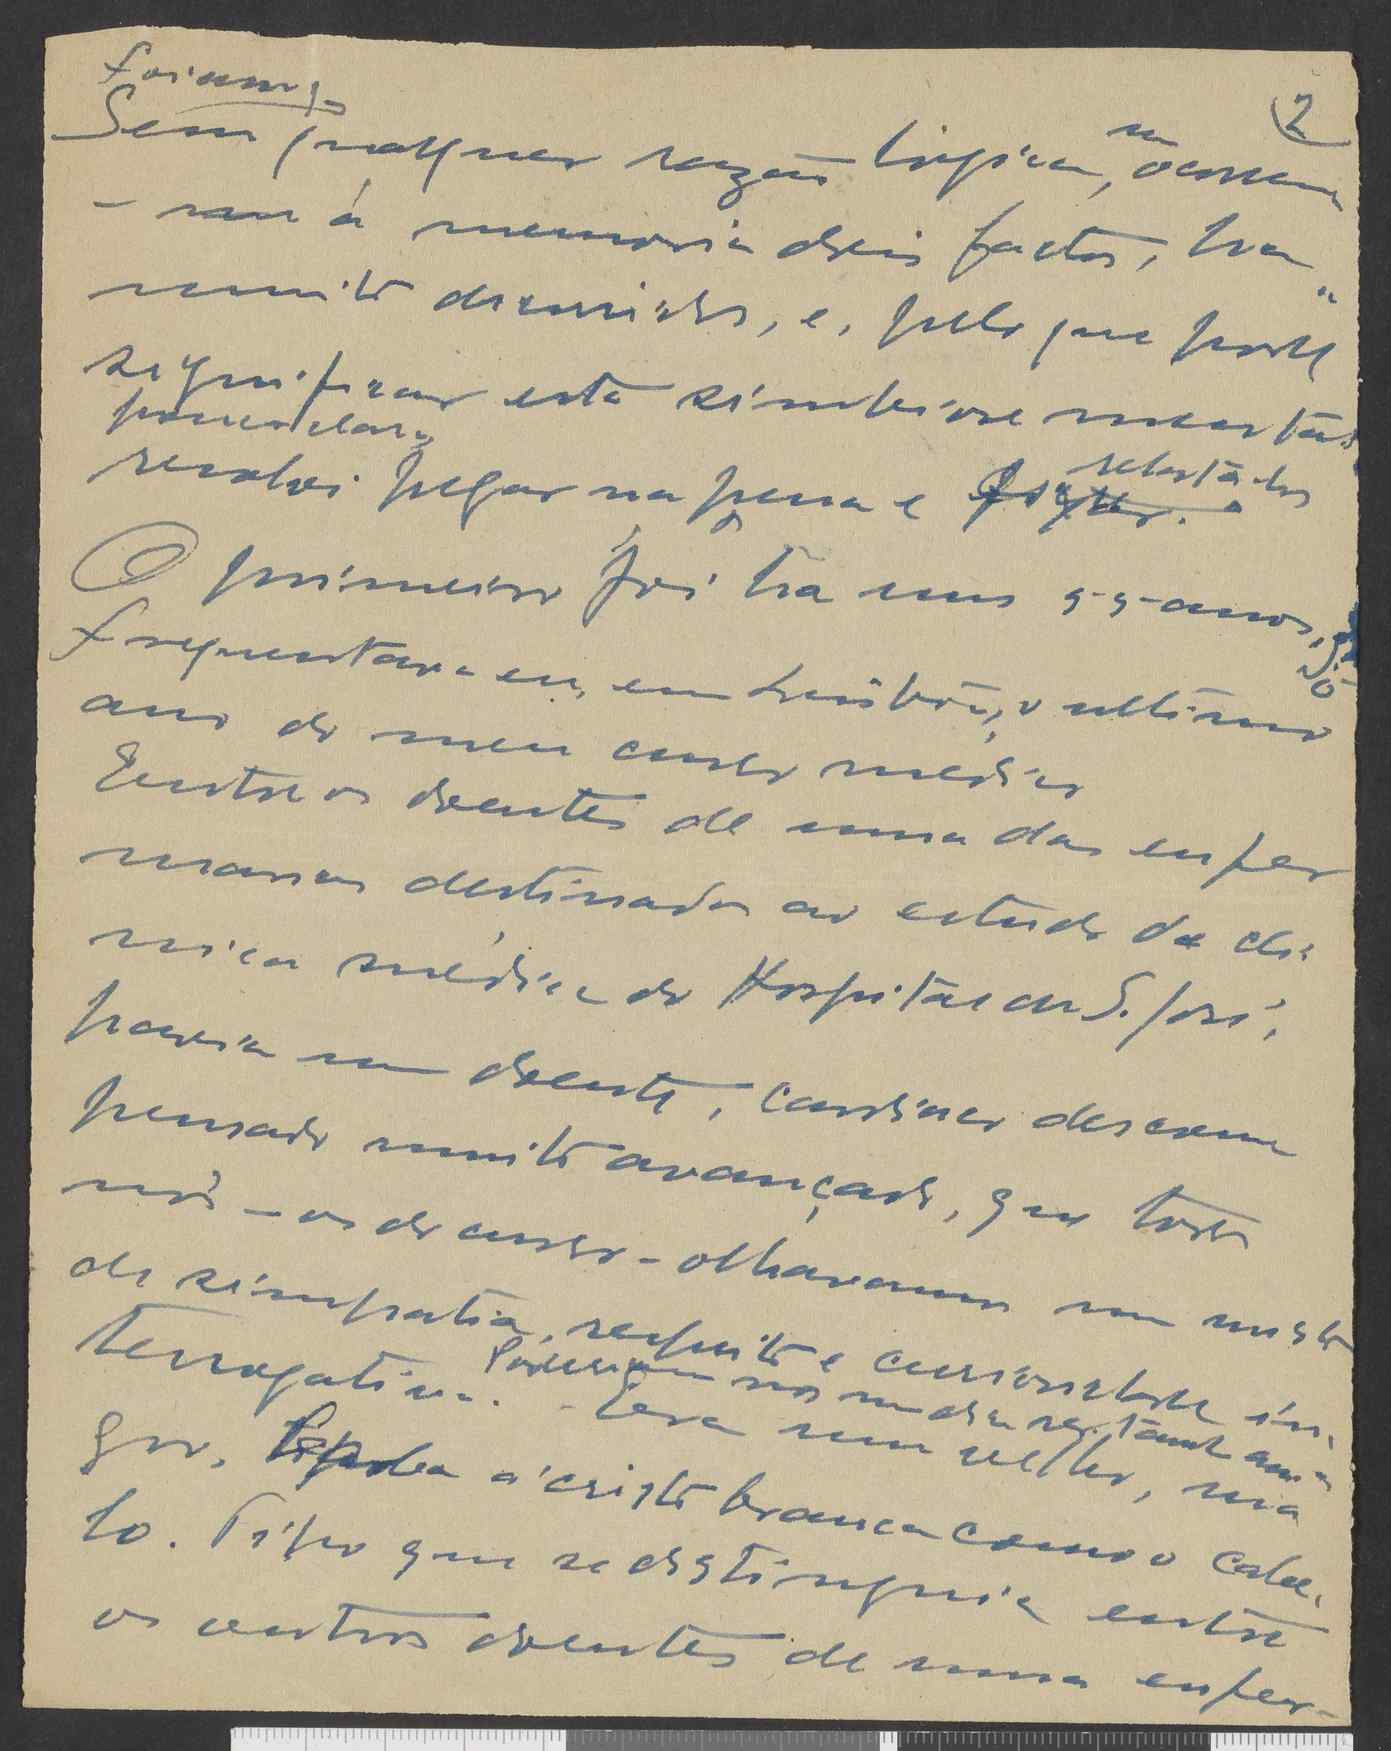 2
Sem qualquer razão logica, ocorre
-ram á memoria dois factos, ha
muito decorridos, e, pelo que pode
significar esta simbiose mental
resolvi pegar na pena e relatá-los
O primeiro foi ha uns 55 anos,
frequentava eu, em Lisbôa, o ultimo
ano do meu curso médico
Entre os doentes de uma das enfer
marias destinadas ao estudo da cli
nica médica do Hospital de S. José,
havia um doente, cardiaco descom
pensado muito avançado, que todos
nós - os do curso - olhavamos num misto
de simpatia, respeito e curiosidade in
terrogativa. - Era um velho, ma
gro, barba á cristo branca como o cabe
lo. Tipo que se distinguia entre
os outros doentes de uma enfer-